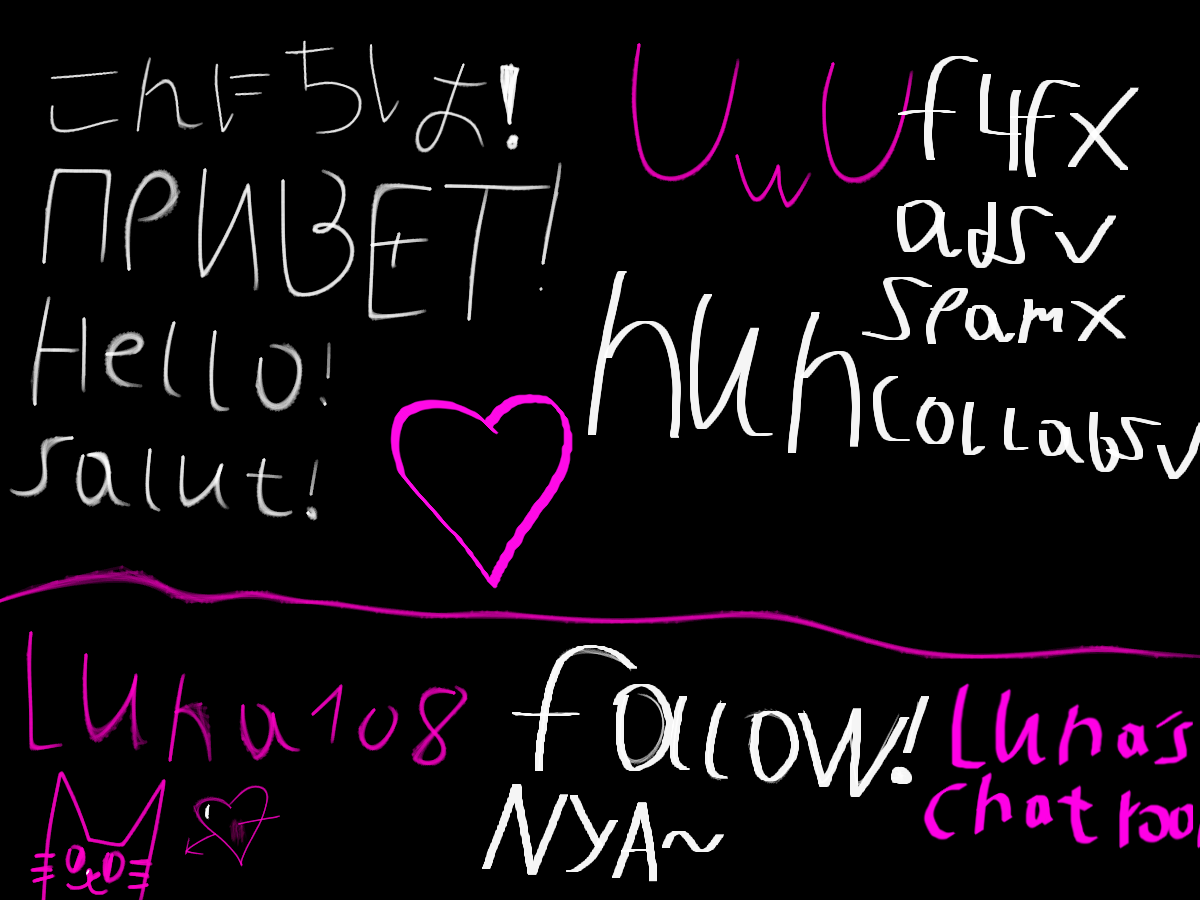 こんにちは!
ПРИВЕТ!
Hello!
Salut!
UwU
f4f x
ads v
spam x
collabs v
huh
Luna108
follow!
NYA~
Luna's
Chat room